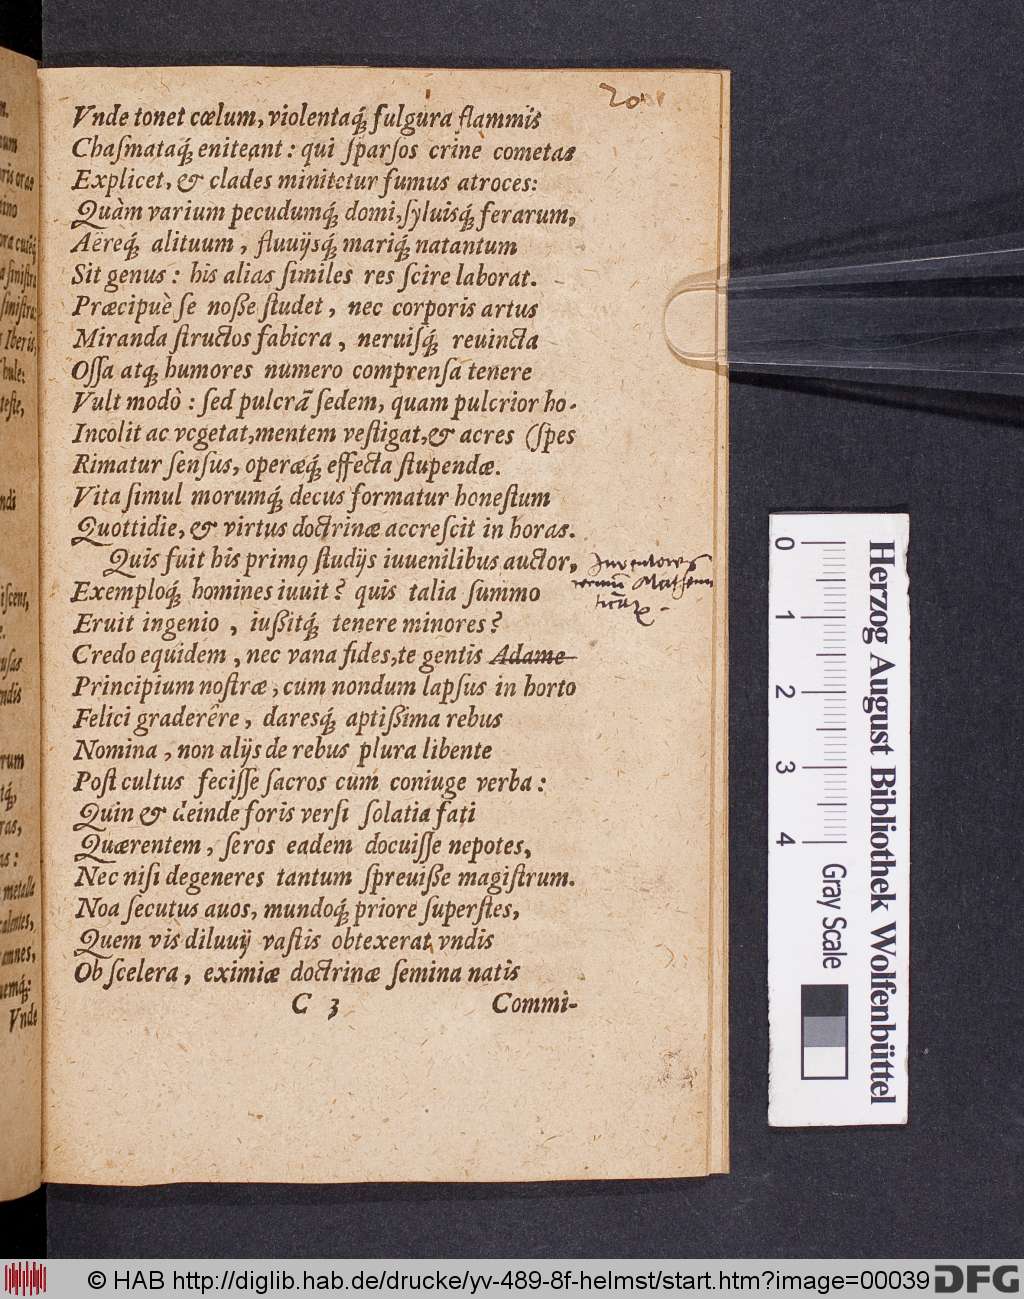 Vnde tonet cœlum, violentaq́; fulgura flammis
Chaſmataq́; eniteant: qui ſparſos crine cometas
Explicet, & clades minitetur fumus atroces:
Quàm varium pecudumq́; domi, ſyluisq́; ferarum,
Aëreq́; alituum, fluuijsq́; mariq́; natantum
Sit genus: his alias ſimiles res ſcire laborat.
Præcipuè ſe noße ſtudet, nec corporis artus
Miranda ſtructos fabicra, neruiſq́; reuincta
Oſſa atq; humores numero comprenſa tenere
Vult modò: ſed pulcrã ſedem, quam pulcrior ho-
Incolit ac vcgetat, mentem veſtigat, & acres (ſpes
Rimatur ſenſus, operæq́; effecta ſtupendæ.
Vita ſimul morumq́; decus formatur honeſtum
Quottidie, & virtus doctrinæ accreſcit in horas.
Quis fuit his primꝰ ſtudijs iuuenilibus auctor,
Exemploq́; homines iuuit? quis talia ſummo
Eruit ingenio, iußitq́; tenere minores?
Credo equidem, nec vana fides, te gentis Adame
Principium noſtræ, cum nondum lapſus in horto
Felici graderêre, daresq́; aptißima rebus
Nomina, non alijs de rebus plura libente
Poſt cultus feciſſe ſacros cum coniuge verba:
Quin & deinde foris verſi ſolatia fati
Quærentem, ſeros eadem docuiſſe nepotes,
Nec niſi degeneres tantum ſpreuiße magiſtrum.
Noa ſecutus auos, mundoq́; priore ſuperſtes,
Quem vis diluuij vaſtis obtexerat vndis
Ob ſcelera, eximiæ doctrinæ ſemina natis
C 3 Commi-
Inventores
rerum Mathem
ticaꝝ.
Vnde
0 1 2 3 4
Gray Scale
Herzog August Bibliothek Wolfenbüttel
© HAB http://diglib.hab.de/drucke/yv-489-8f-helmst/start.htm?image=00039
DFG